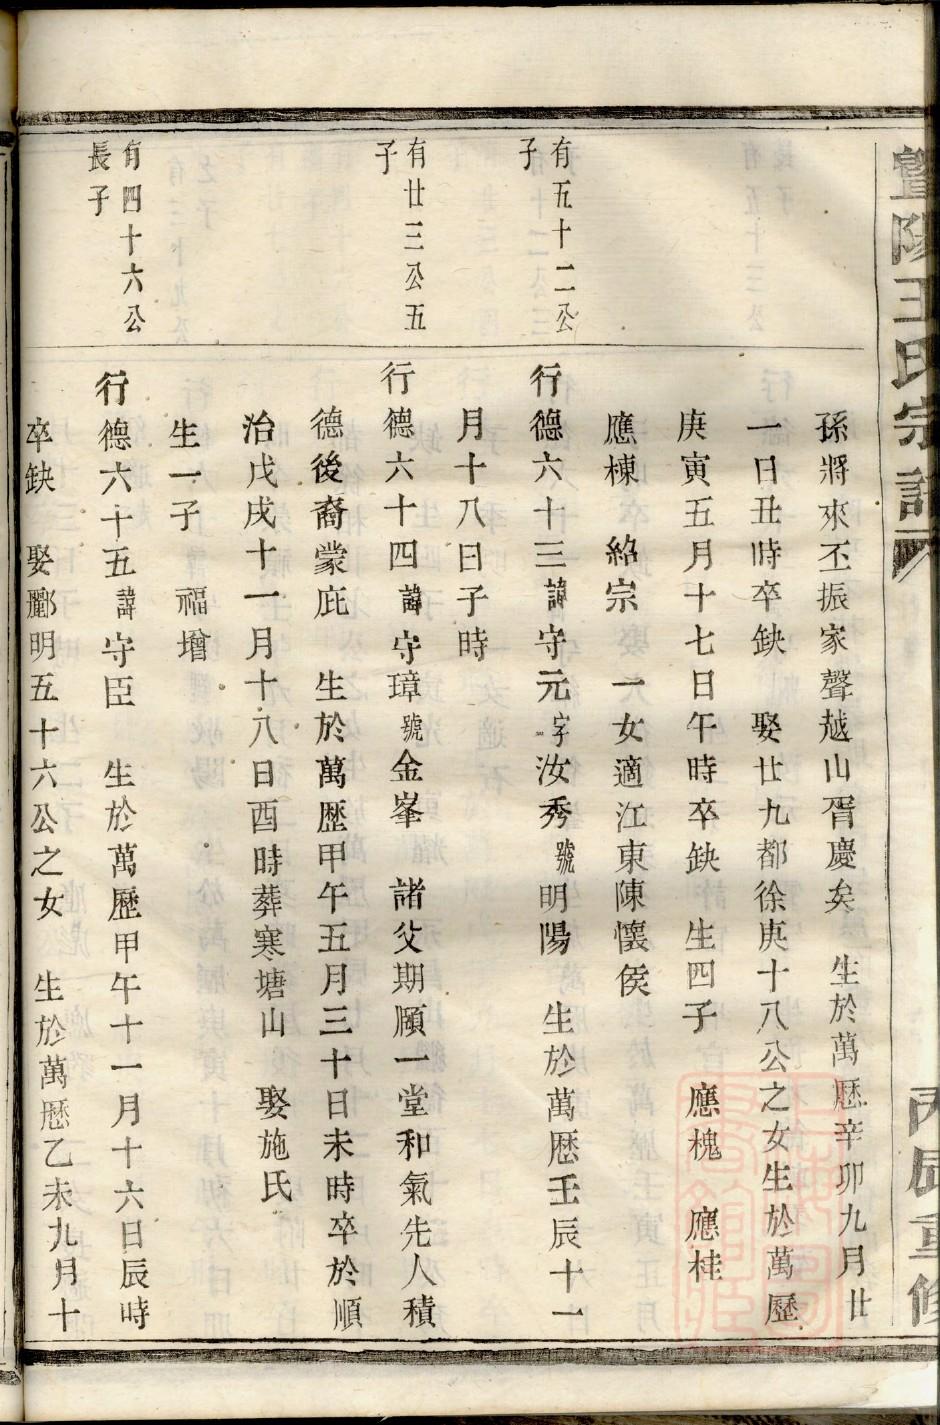 暨陽王氏宗譜
丙辰重修
孫將來丕振家聲越山胥慶矣 生於萬歷辛卯九月廿
一日丑時卒缺 娶廿九都徐庚十八公之女生於萬歷
庚寅五月十七日午時卒缺 生四子 應槐 應桂
應棟 紹宗 一女適江東陳懷侯
有五十二公
子
行德六十三諱守元字汝秀號明陽 生於萬歷壬辰十一
月十八日子時
有廿三公五
子
行德六十四諱守璋號金峯 諸父期願一堂和氣先人積
德後裔蒙庇 生於萬歷甲午五月三十日未時卒於順
治戊戌十一月十八日酉時葬寒塘山 娶施氏
生一子 福增
有四十六公
長子
行德六十五諱守臣 生於萬歷甲午十一月十六日辰時
卒缺 娶酈明五十六公之女 生於萬歷乙未九月十